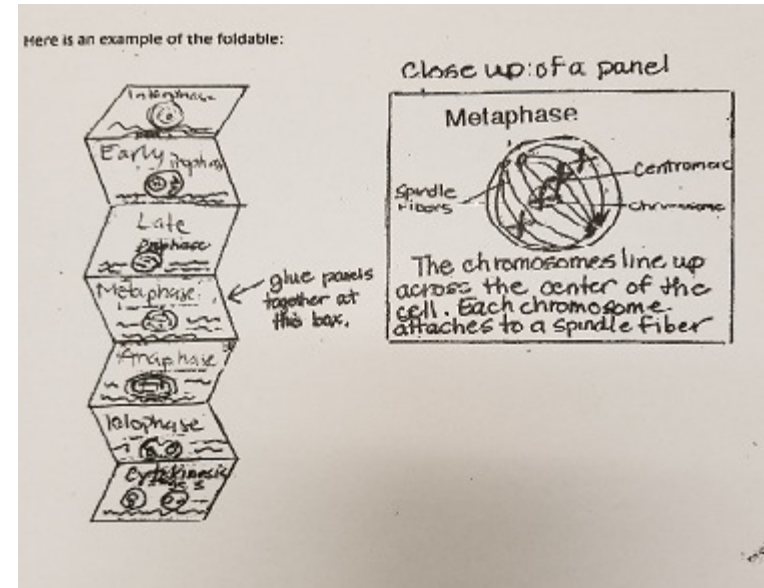 Here is an example of the foldable:
Interphase
Early Prophase
Late
Prophase
Metaphase
glue panels
together at
this box.
Anaphase
Telophase
Cytokinesis
Close up: of a panel
Metaphase
Spindle
Fibers
Centromere
Chromosome
The chromosomes line up
across the center of the
cell. Each chromosome
attaches to a spindle fiber